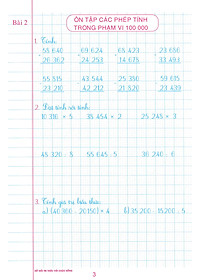 Bài 2
ÔN TẬP CÁC PHÉP TÍNH
TRONG PHẠM VI 100 000
1. Tính:
55 640 69 624 65 423 23 656
20 362 24 253 14 675 33 493
55 515 43 544 25 350 59 615
23 210 42 212 21 520 23 439
2. Đặt tính và tính:
10 310 × 5 35 454 × 2 25 245 × 3
45 320 : 5 55 645 : 5 30 240 : 6
3. Tính giá trị biểu thức:
a) (40 300 - 20 150) × 4 b) 35 200 - 15 200 : 5
3